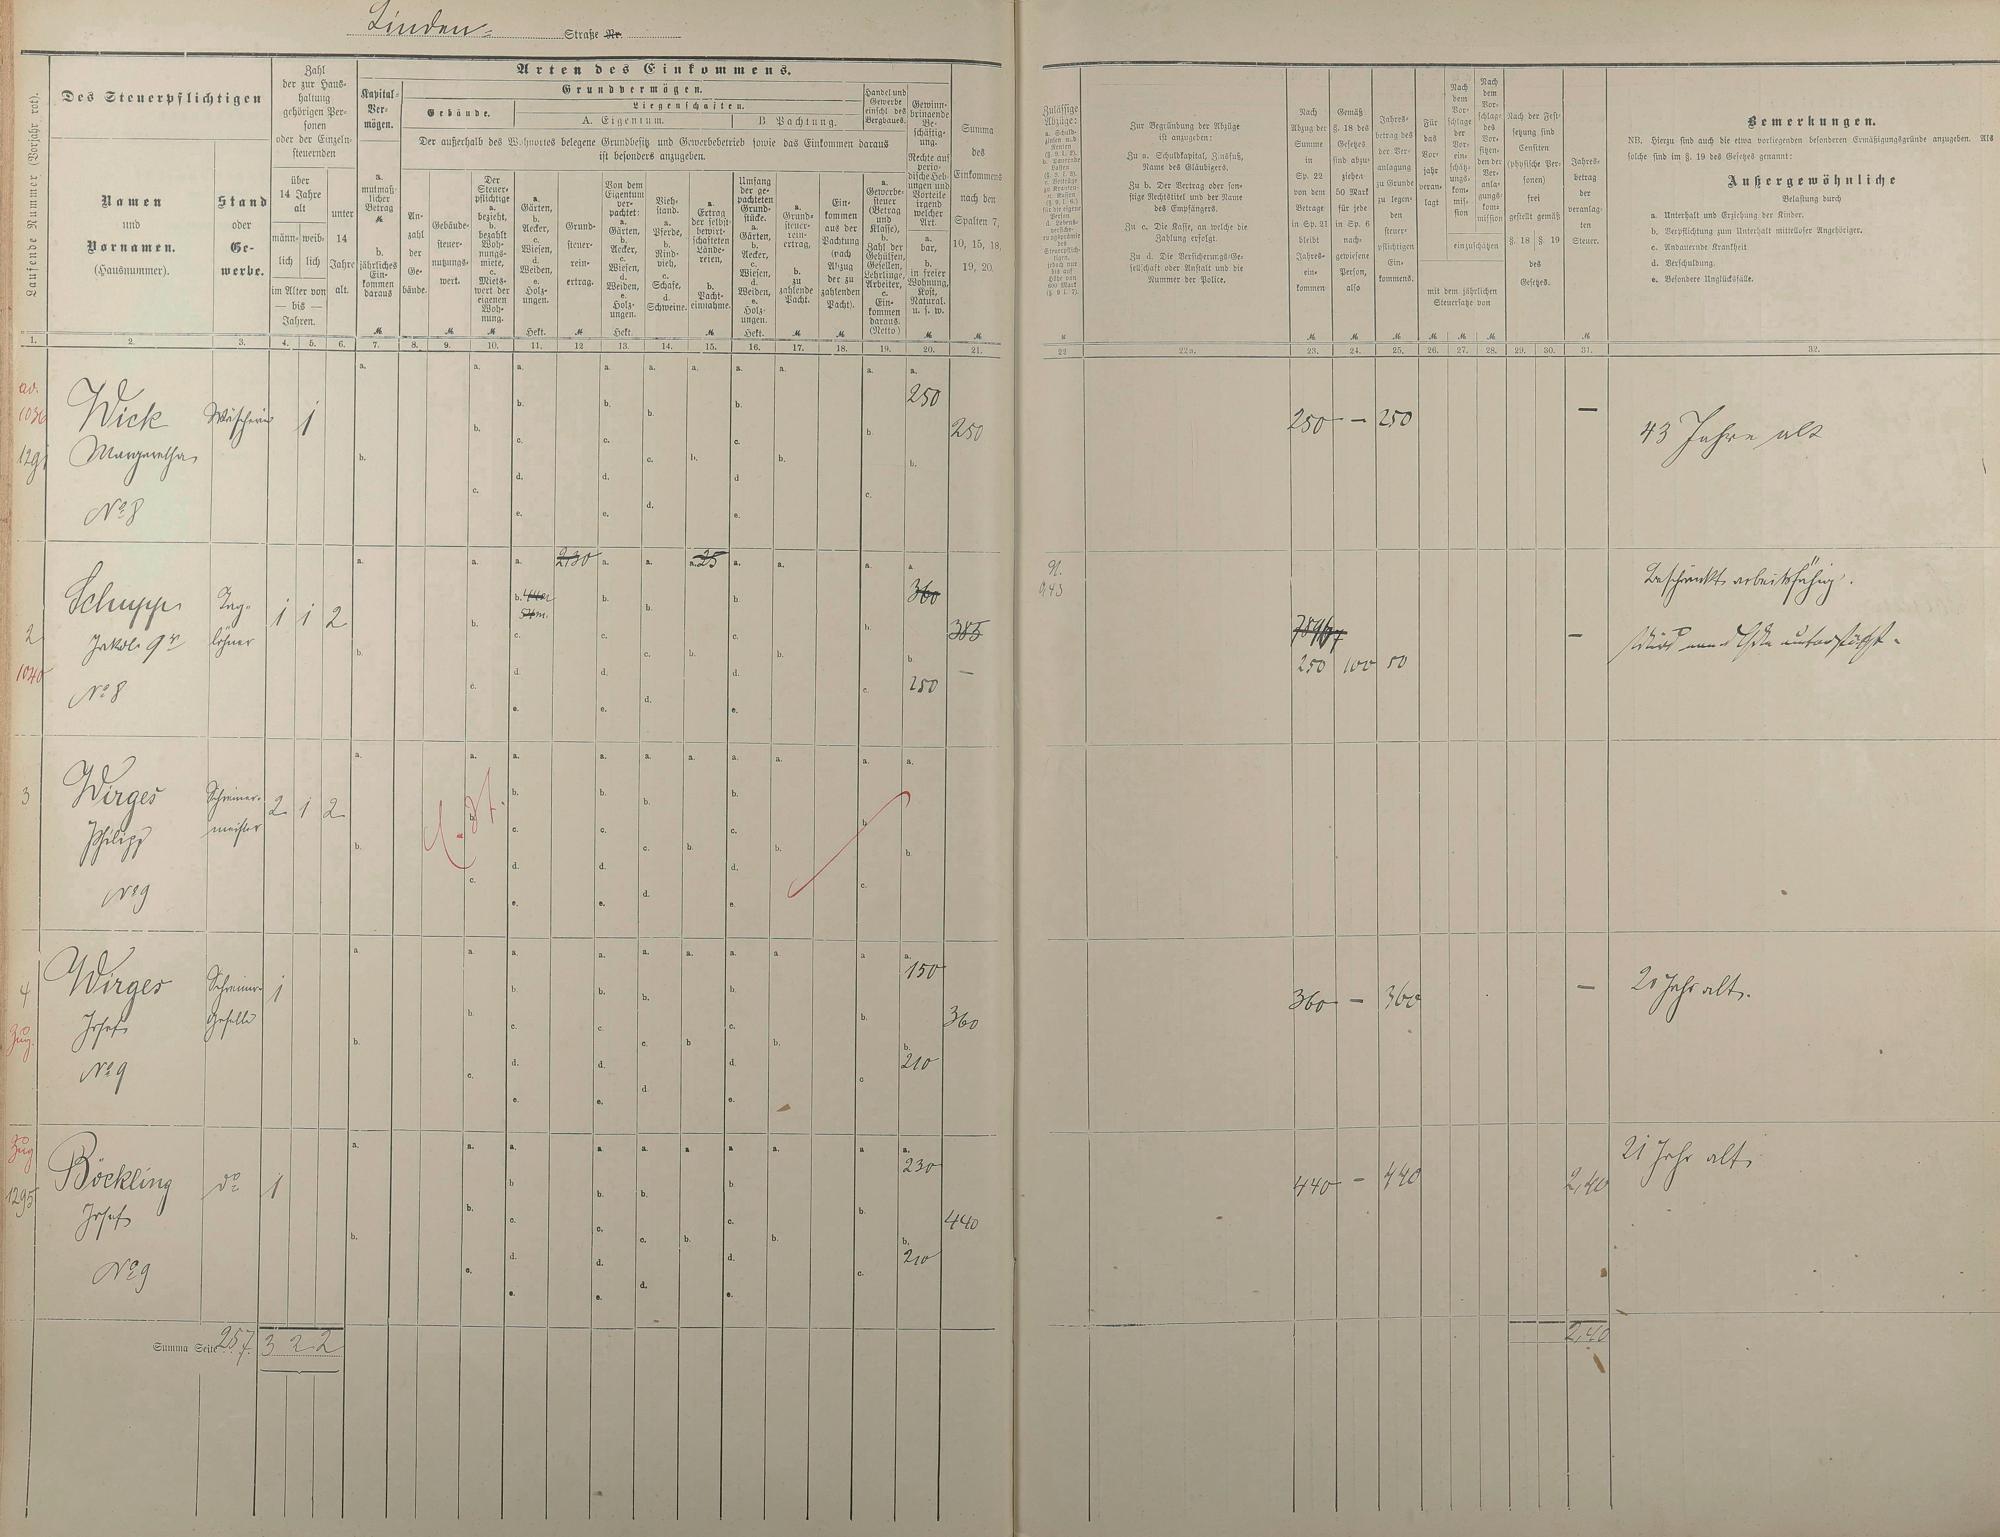 Linden= Straße Nr.
Laufende Nummer (Vorjahr rot).
Des Steuerpflichtigen
Namen
und
Vornamen.
(Hausnummer).
Stand
oder
Ge-
werbe.
Zahl
der zur Haus-
haltung
gehörigen Per-
sonen
oder der Einzeln-
steuernden
über
14 Jahre
alt
männ-
lich
weib-
lich
im Alter von
— bis —
Jahren.
unter
14
Jahre
alt.
Arten des Einkommens.
Kapital-
Ver-
mögen.
a.
mutmaß-
licher
Betrag
b.
jährliches
Ein-
kommen
daraus
Grundvermögen.
Gebäude.
Liegenschaften.
A. Eigentum.
B Pachtung.
Der außerhalb des Wohnortes belegene Grundbesitz und Gewerbebetrieb sowie das Einkommen daraus
ist besonders anzugeben.
An-
zahl
der
Ge-
bäude.
Gebäude-
steuer-
nutzungs-
wert.
Der
Steuer-
pflichtige
a.
bezieht,
b.
bezahlt
Woh-
nungs-
miete,
c.
Miets-
wert der
eigenen
Woh-
nung.
a.
Gärten,
b.
Aecker,
c.
Wiesen,
d.
Weiden,
e.
Holz-
ungen.
Hekt.
Grund-
steuer-
rein-
ertrag.
Von dem
Eigentum
ver-
pachtet:
a.
Gärten,
b.
Aecker,
c.
Wiesen,
d.
Weiden,
e.
Holz-
ungen.
Hekt.
Vieh-
stand.
a.
Pferde,
b.
Rind-
vieh,
c.
Schafe,
d.
Schweine.
a.
Ertrag
der selbst-
bewirt-
schafteten
Lände-
reien,
b.
Pacht-
einnahme.
Umfang
der ge-
pachteten
Grund-
stücke.
a.
Gärten,
b.
Aecker,
c.
Wiesen,
d.
Weiden,
e.
Holz-
ungen.
Hekt.
a.
Grund-
steuer-
rein-
ertrag,
b.
zu
zahlende
Pacht.
Ein-
kommen
aus der
Pachtung
(nach
Abzug
der zu
zahlenden
Pacht).
Handel und
Gewerbe
einschl. des
Bergbaues.
a.
Gewerbe-
steuer
(Betrag
und
Klasse),
b.
Zahl der
Gehülfen,
Gesellen,
Lehrlinge,
Arbeiter,
c.
Ein-
kommen
daraus.
(Netto)
Gewinn-
bringende
Be-
schäftig-
ung.
Rechte auf
perio-
dische Heb-
ungen und
Vorteile
irgend
welcher
Art.
a.
bar,
b.
in freier
Wohnung,
Kost,
Natural.
u. s. w.
Summa
des
Einkommens
nach den
Spalten 7,
10, 15, 18,
19, 20.
Zulässige
Abzüge:
Zur Begründung der Abzüge
ist anzugeben:
Zu a. Schuldkapital, Zinsfuß,
Name des Gläubigers.
Zu b. Der Vertrag oder son-
stige Rechtstitel und der Name
des Empfängers.
Zu c. Die Kasse, an welche die
Zahlung erfolgt.
Zu d. Die Versicherungs-Ge-
sellschaft oder Anstalt und die
Nummer der Police.
Nach
Abzug der
Summe
in
Sp. 22
von dem
Betrage
in Sp. 21
bleibt
Jahres-
ein-
kommen
Gemäß
§. 18 des
Gesetzes
sind abzu-
ziehen
50 Mark
für jede
in Sp. 6
nach-
gewiesene
Person,
also
Jahres-
betrag des
der Ver-
anlagung
zu Grunde
zu legen-
den
steuer-
pflichtigen
Ein-
kommens.
Für
das
Vor-
jahr
veran-
lagt
Nach
dem
Vor-
schlage
der
Vor-
ein-
schätz-
ungs-
kom-
mis-
sion
Nach
dem
Vor-
schlage
des
Vor-
sitzen-
den der
Ver-
anla-
gungs-
kom-
mission
einzuschätzen
mit dem jährlichen
Steuersatze von
Nach der Fest-
setzung sind
Censiten
(physische Per-
sonen)
frei
gestellt gemäß
§. 18
§. 19
des
Gesetzes.
Jahres-
betrag
der
veranlag-
ten
Steuer.
Bemerkungen.
NB. Hierzu sind auch die etwa vorliegenden besonderen Ermäßigungsgründe anzugeben. Als
solche sind im §. 19 des Gesetzes genannt:
Außergewöhnliche
Belastung durch
a. Unterhalt und Erziehung der Kinder.
b. Verpflichtung zum Unterhalt mittelloser Angehöriger.
c. Andauernde Krankheit
d. Verschuldung.
e. Besondere Unglücksfälle.
1. 2. 3. 4. 5. 6. 7. 8. 9. 10. 11. 12 13. 14. 15. 16. 17. 18. 19. 20. 21. 22 22a. 23. 24. 25. 26. 27. 28. 29. 30. 31. 32.
1036
1291
Wick
Margaretha
No 8
Wäscherin
1
250
250
250 — 250
—
43 Jahre alt
2
1040
Schupp
Jakob 9r
No 8
Tag-
löhner
1 1 2
230
25
360
250
385
—
943
250 100 50
—
Beschränkt arbeitsfähig.
3
Wirges
Philipp
No 9
Schreiner-
meister
2 1 2
4
Zug.
Wirges
Josef
No 9
Schreiner-
geselle
1
150
210
360
360 — 360
—
20 Jahr alt.
Zug
1295
Böckling
Josef
No 9
do
1
230
210
440
440 — 440
2,40
21 Jahr alt.
Summa Seite 257. 3 2 2
2,40